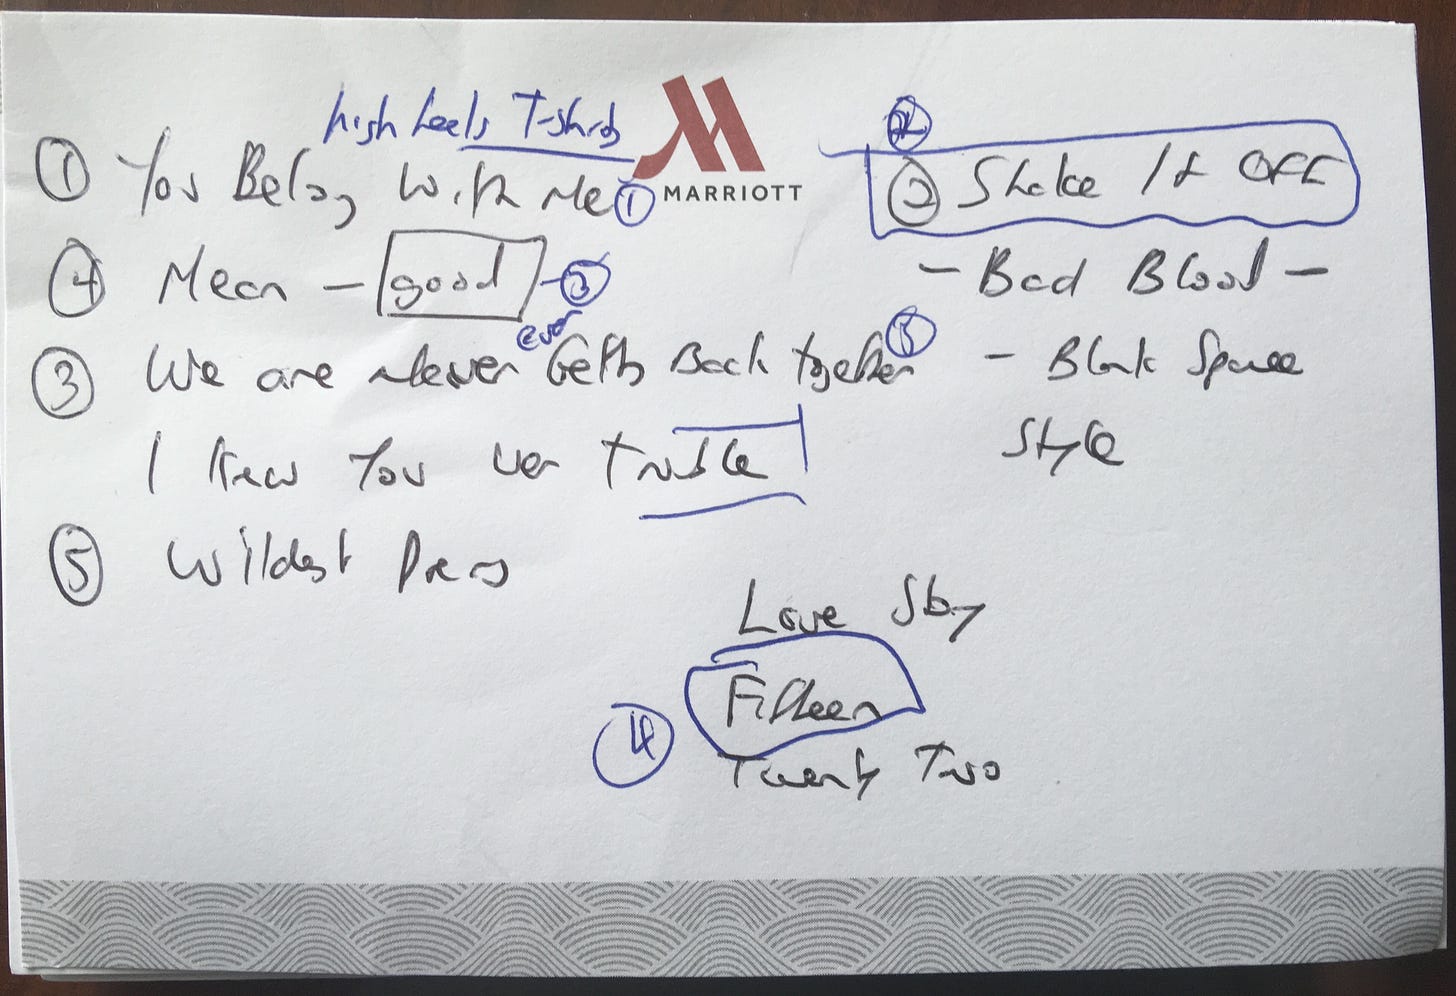 high heels T-shirts
① You Belong With Me ①
MARRIOTT
④ Mean - good - ③
ever
③ We are Never Getting Back together ⑤
I Knew You wer Trouble
⑤ Wildest Dreams
②
② Shake It OFF
- Bad Blood -
- Blank Space
Style
Love Story
④ Fifteen
Twenty Two